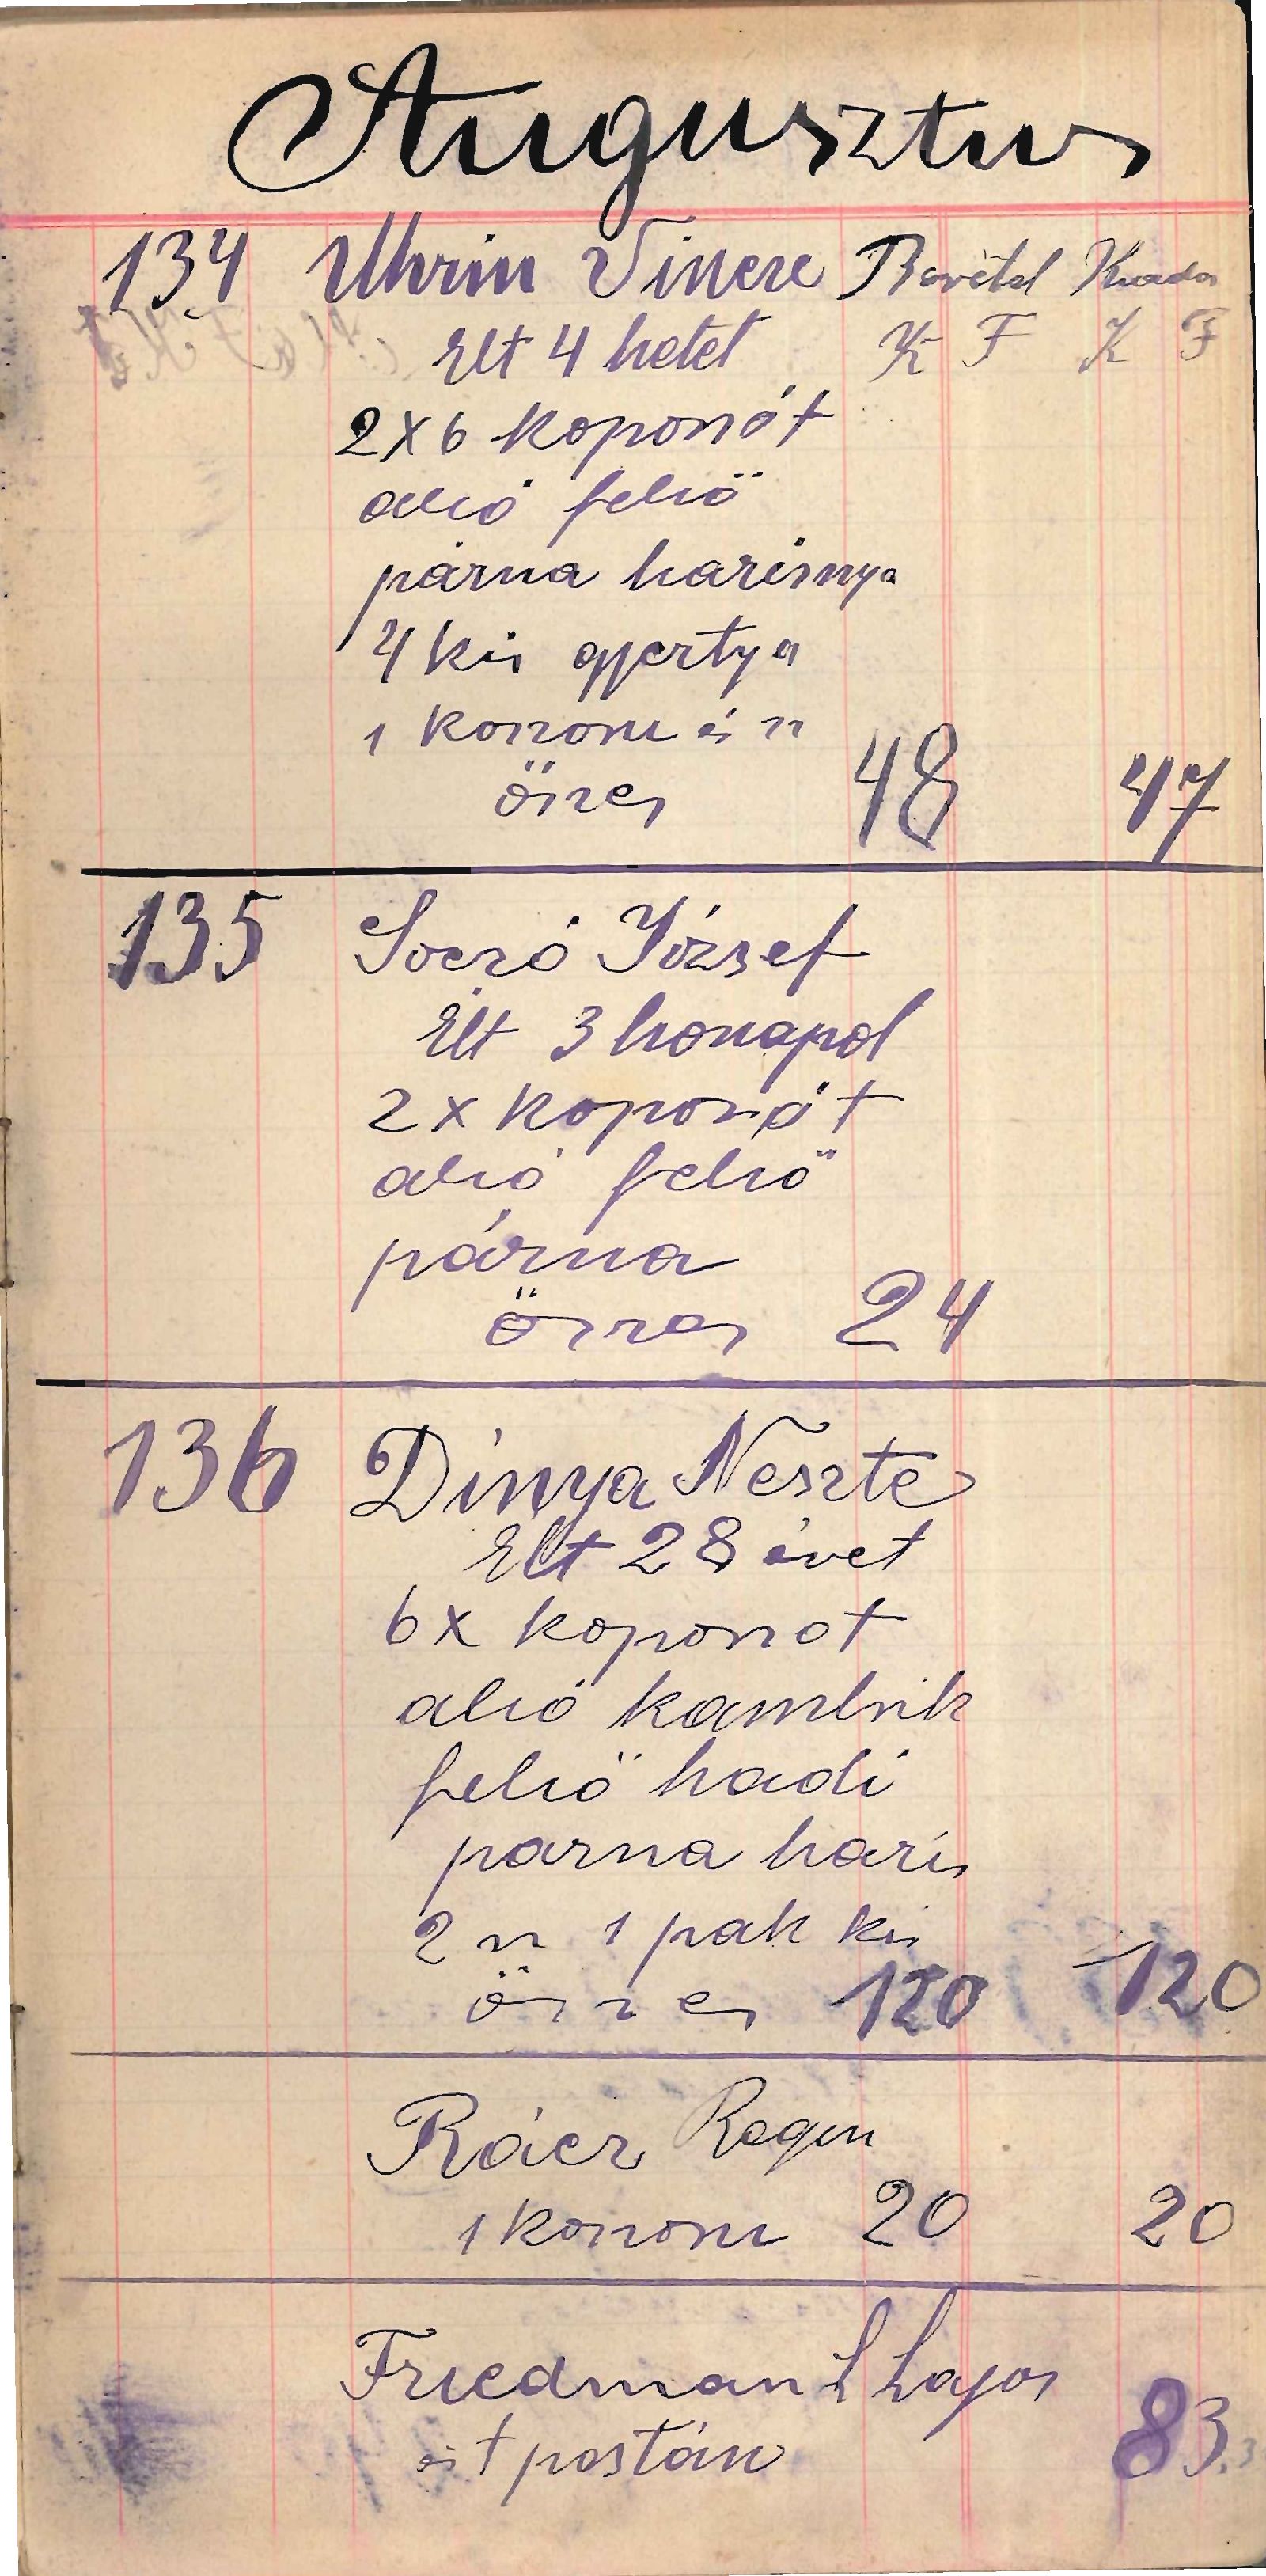 Augusztus
134 Uhrin Vinere Bevétel Kiadás
Elt 4 hetet K F K F
2x6 koporsót
alsó felső
párna harisnya
4 kis gyertya
1 koszoru és
össes 48 47
135 Soczó József
Élt 3 honapol
2x koporsót
alsó felső
párna
összes 24
136 Dinya Neszte
Elt 28 évet
6x koporsot
alsó kambrik
felső hadi
parna haris
2 sz 1 pak kis
összes 120 120
Rácz Regin
1 koszoru 20 20
Friedman L Lajos
postán 83.